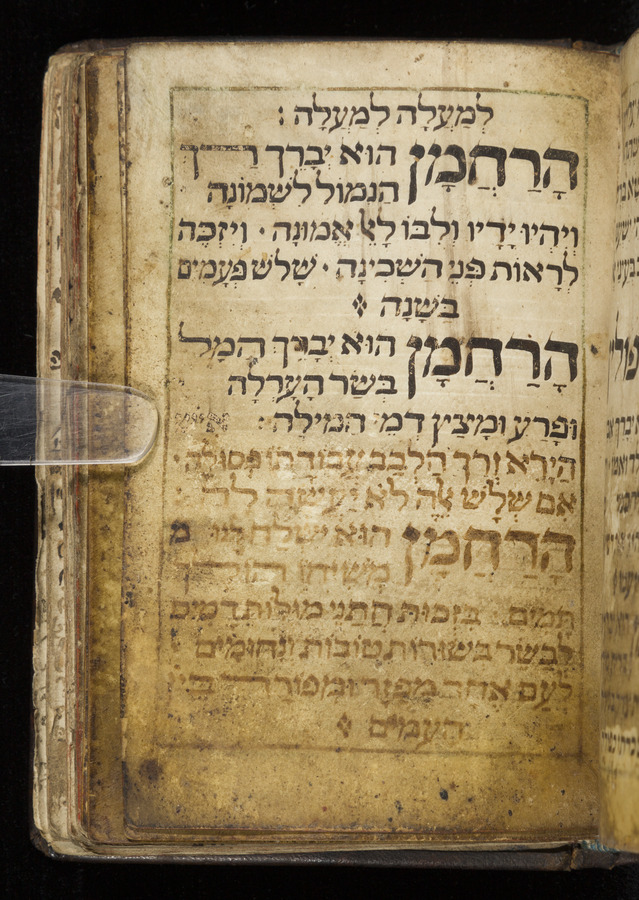 לְמַעְלָה לְמַעְלָה :
הָרַחֲמָן הוּא יְבָרֵךְ רַךְ
הַנִּמּוֹל לִשְׁמוֹנָה
וְיִהְיוּ יָדָיו וְלִבּוֹ לָאֵל אֱמוּנָה · וְיִזְכֶּה
לִרְאוֹת פְּנֵי הַשְּׁכִינָה · שָׁלֹשׁ פְּעָמִים
בַּשָּׁנָה
הָרַחֲמָן הוּא יְבָרֵךְ הַמָּל
בְּשַׂר הָעָרְלָה
וּפָרַע וּמָצִיץ דְּמֵי הַמִּילָה :
הַיָּרֵא וְרַךְ הַלֵּבָב עֲבוֹדָתוֹ פְּסוּלָה ·
אִם שְׁלָשׁ אֵלֶּה לֹא יַעֲשֶׂה לָהּ
הָרַחֲמָן הוּא יִשְׁלַח לָנוּ
מְשִׁיחוֹ הוֹלֵךְ
תָּמִים · בִּזְכוּת חֲתַנֵי מוּלוֹת דָּמִים
לְבַשֵּׂר בְּשׂוֹרוֹת טוֹבוֹת וְנִחוּמִים
לְעַם אֶחָד מְפֻזָּר וּמְפוֹרָד בֵּין
הָעַמִּים